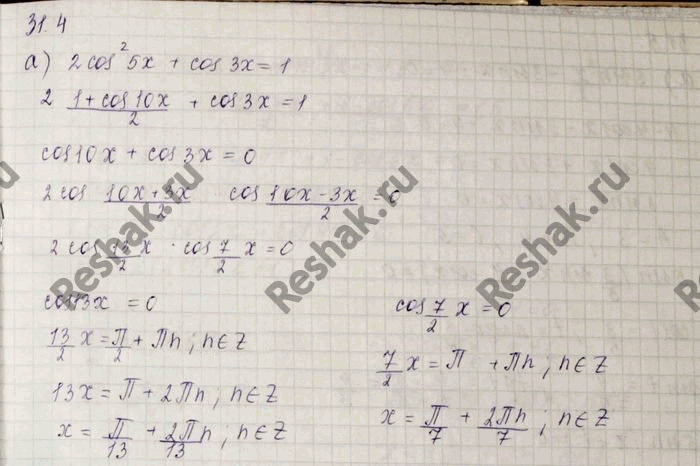 31.4
а) 2cos²5x + cos3x = 1
2 (1+cos10x)/2 + cos3x = 1
cos10x + cos3x = 0
2cos (10x+3x)/2 · cos (10x-3x)/2 = 0
2cos 13/2 x · cos 7/2 x = 0
cos13x = 0
13/2 x = П/2 + Пn; n∈Z
13x = П + 2Пn; n∈Z
x = П/13 + 2Пn/13; n∈Z
cos 7/2 x = 0
7/2 x = П + Пn; n∈Z
x = П/7 + 2Пn/7; n∈Z
Reshak.ru
Reshak.ru
Reshak.ru